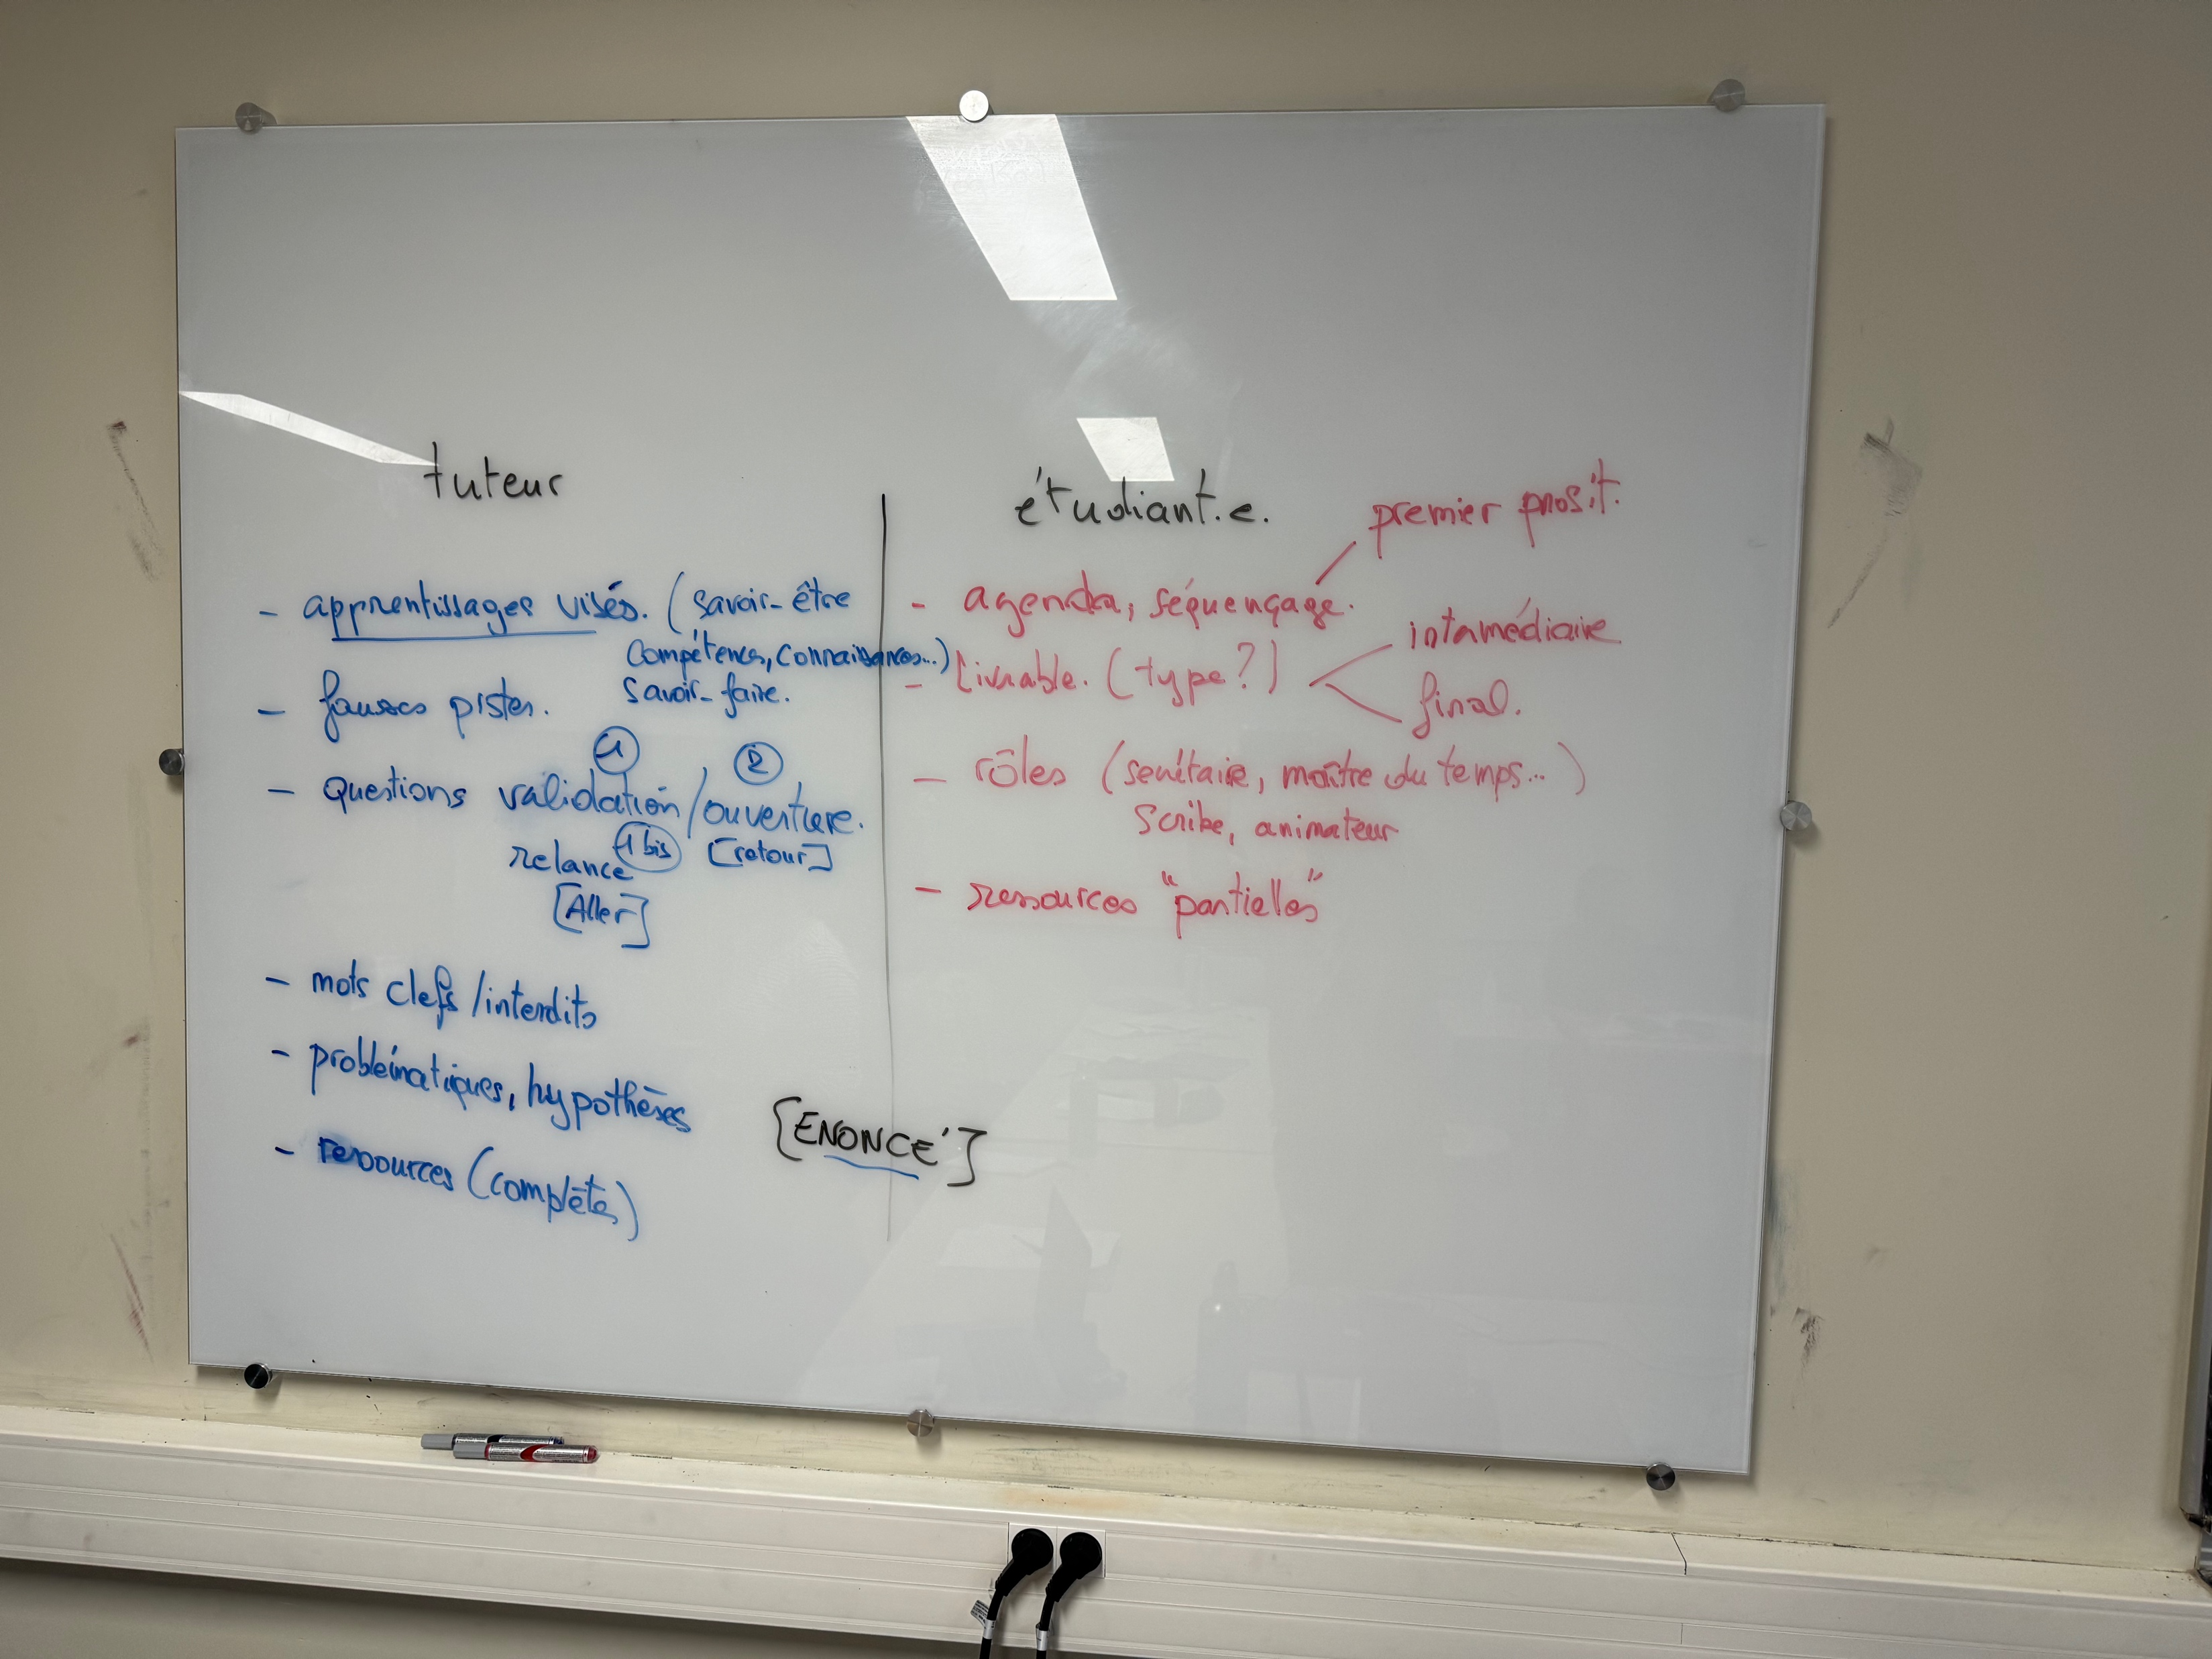 tuteur
- apprentissages visés. (savoir-être
compétences, connaissances...)
savoir-faire.
- fausses pistes.
1 2
- questions validation/ouverture.
relance 1 bis [retour]
[Aller]
- mots clefs/interdits
- problématiques, hypothèses
- ressources (complètes)
[ENONCÉ]
étudiant.e.
premier prosit.
- agenda, séquençage.
intermédiaire
- livrable. (type?)
final.
- rôles (secrétaire, maître du temps...)
scribe, animateur
- ressources "partielles"